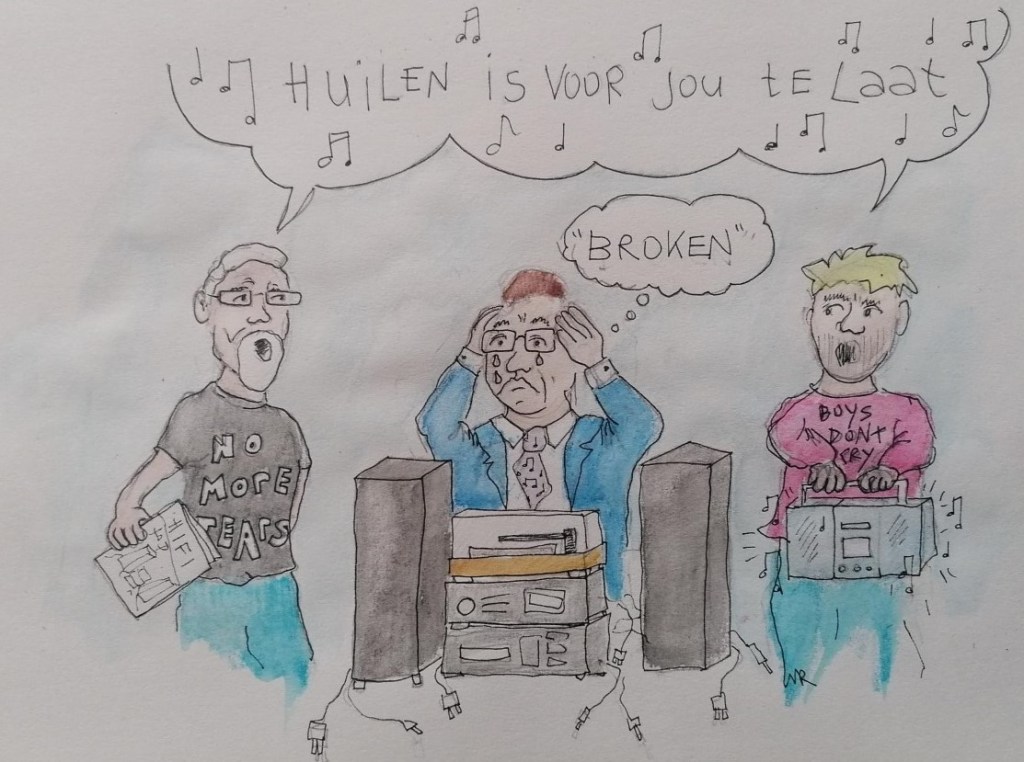 HUiLEN iS VOOR JOU tE Laat
"BROKEN"
NO
MORE
TEARS
HIFI
BOYS
DONT
CRY
MR